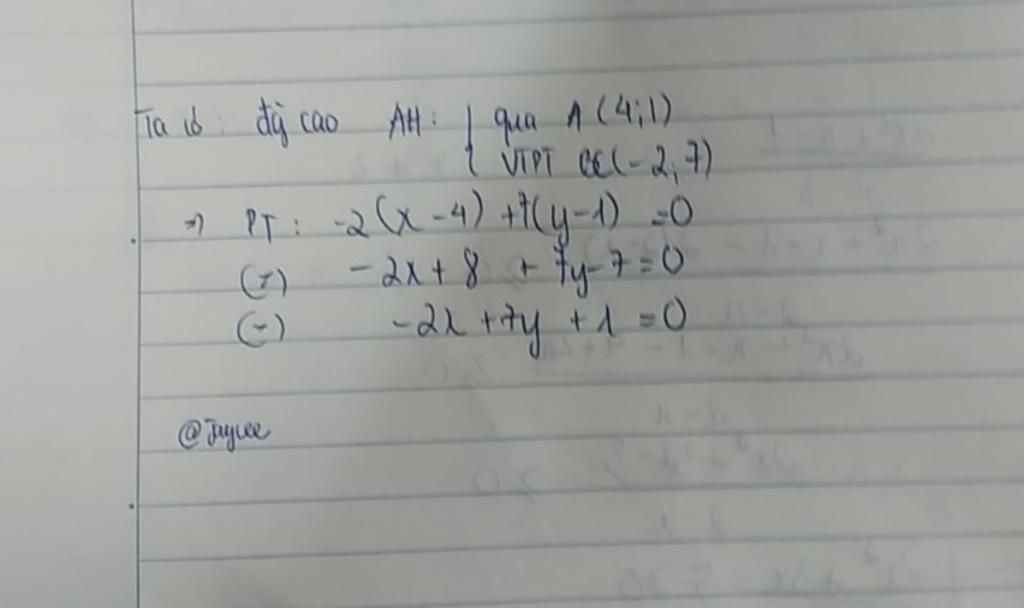 Ta có : đg cao AH: { qua A (4;1)
VTPT BC(-2;7)
=> PT : -2(x-4) +7(y-1) =0
(=) -2x+8 +7y-7=0
(=) -2x +7y +1 =0
@Jaycee